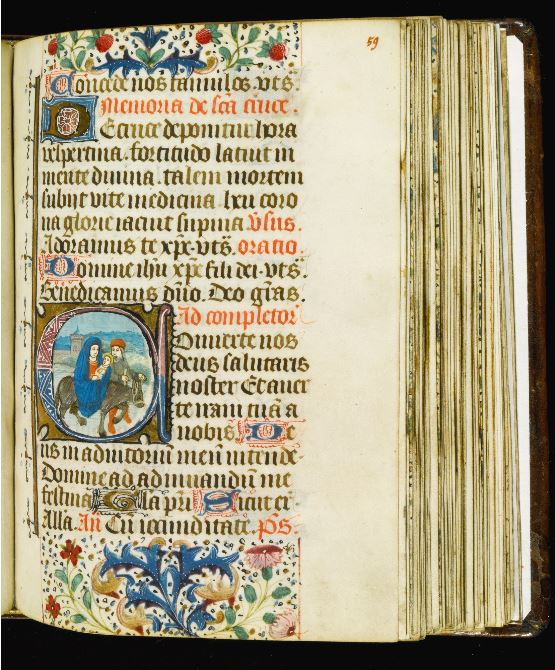 59
Concede nos famulos. vts̄.
Memoria de sc̄a cruce.
De cruce deponitur hora
vespertina. fortitudo latuit in
mente diuina. talem mortem
subiit vite medicina. coro
na glorie iacuit supina v̄sus.
Adoramus te xp̄e. vts̄. oratio.
Domine ihū xp̄e fili dei. vts̄.
Benedicamus dn̄o. Deo gr̄as.
Ad completor̄
Conuerte nos
deus salutaris
noster Et auer
te iram tuā a
nobis. De
us in adiutoriū meū intende.
Domine ad adiuuandū me
festina Gl̄a pr̄i Sicut er̄
Alla. An̄ Cū iocunditate. p̄s.